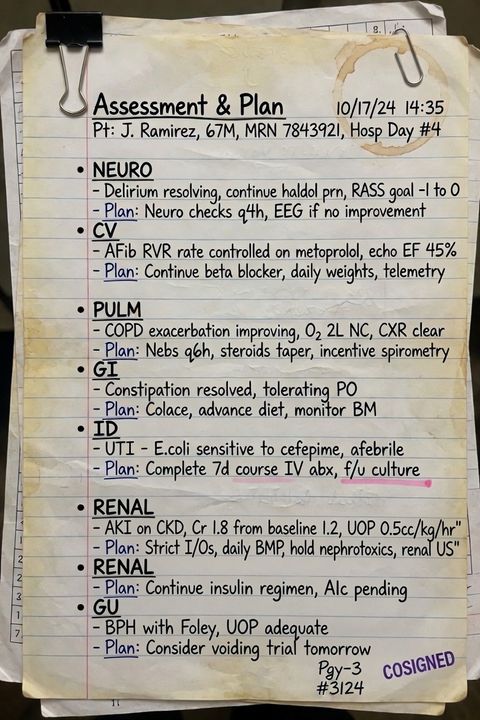 Assessment & Plan 10/17/24 14:35
Pt: J. Ramirez, 67M, MRN 7843921, Hosp Day #4
• NEURO
- Delirium resolving, continue haldol prn, RASS goal -1 to 0
- Plan: Neuro checks q4h, EEG if no improvement
• CV
- AFib RVR rate controlled on metoprolol, echo EF 45%
- Plan: Continue beta blocker, daily weights, telemetry
• PULM
- COPD exacerbation improving, O₂ 2L NC, CXR clear
- Plan: Nebs q6h, steroids taper, incentive spirometry
• GI
- Constipation resolved, tolerating PO
- Plan: Colace, advance diet, monitor BM
• ID
- UTI - E.coli sensitive to cefepime, afebrile
- Plan: Complete 7d course IV abx, f/u culture
• RENAL
- AKI on CKD, Cr 1.8 from baseline 1.2, UOP 0.5cc/kg/hr"
- Plan: Strict I/Os, daily BMP, hold nephrotoxics, renal US"
• RENAL
- Plan: Continue insulin regimen, A1c pending
• GU
- BPH with Foley, UOP adequate
- Plan: Consider voiding trial tomorrow
Pgy-3
#3124
COSIGNED